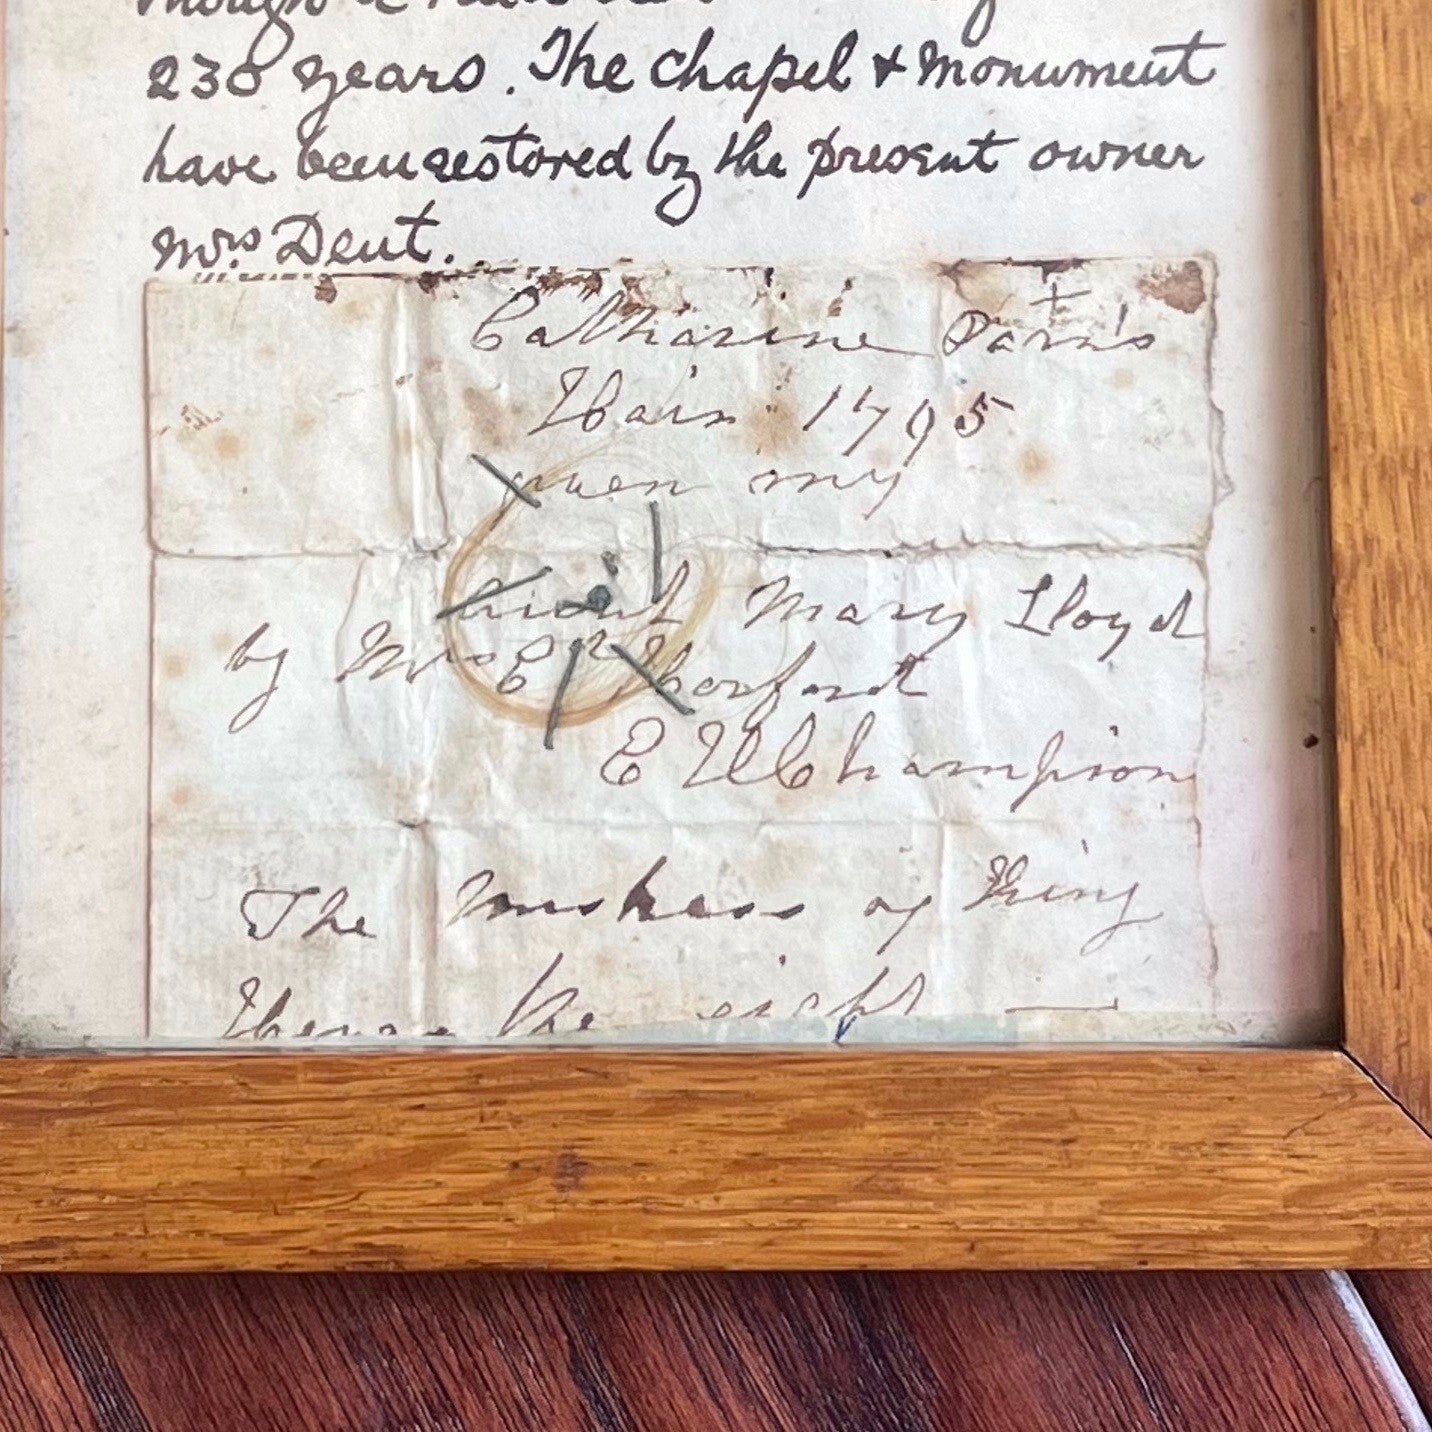 230 years. The chapel & monument
have been restored by the present owner
Mrs Dent.
Catharine Parr's
Hair 1795
given my
Aunt Mary Lloyd
by Mrs
E Champion
The of King
the eight